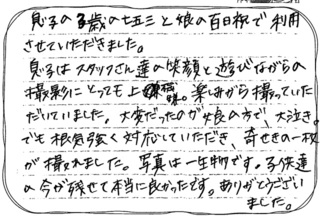 息子の3歳の七五三と娘の百日祝で利用
させていただきました。
息子はスタッフさん達の笑顔と遊びながらの
撮影にとっても上機嫌。楽しみながら撮っていた
だいていました。大変だったのが娘の方で、大泣き。
でも根気強く対応していただき、奇せきの一枚
が撮れました。写真は一生物です。子供達
の今が残せて本当に良かったです。ありがとうござい
ました。